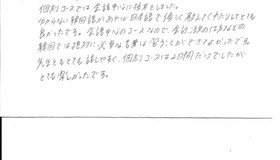 個別コースでは会話中心に授業をしました。
分からない韓国語があれば日本語で優しく教えてくださりとても
良かったです。会話中心のコースなので、会計、注文の仕方などの
韓国では絶対に必要な言葉は習うことができてよかったです。
先生ともとても話しやすく、個別コースは2日間だけでしたが
とても楽しかったです。